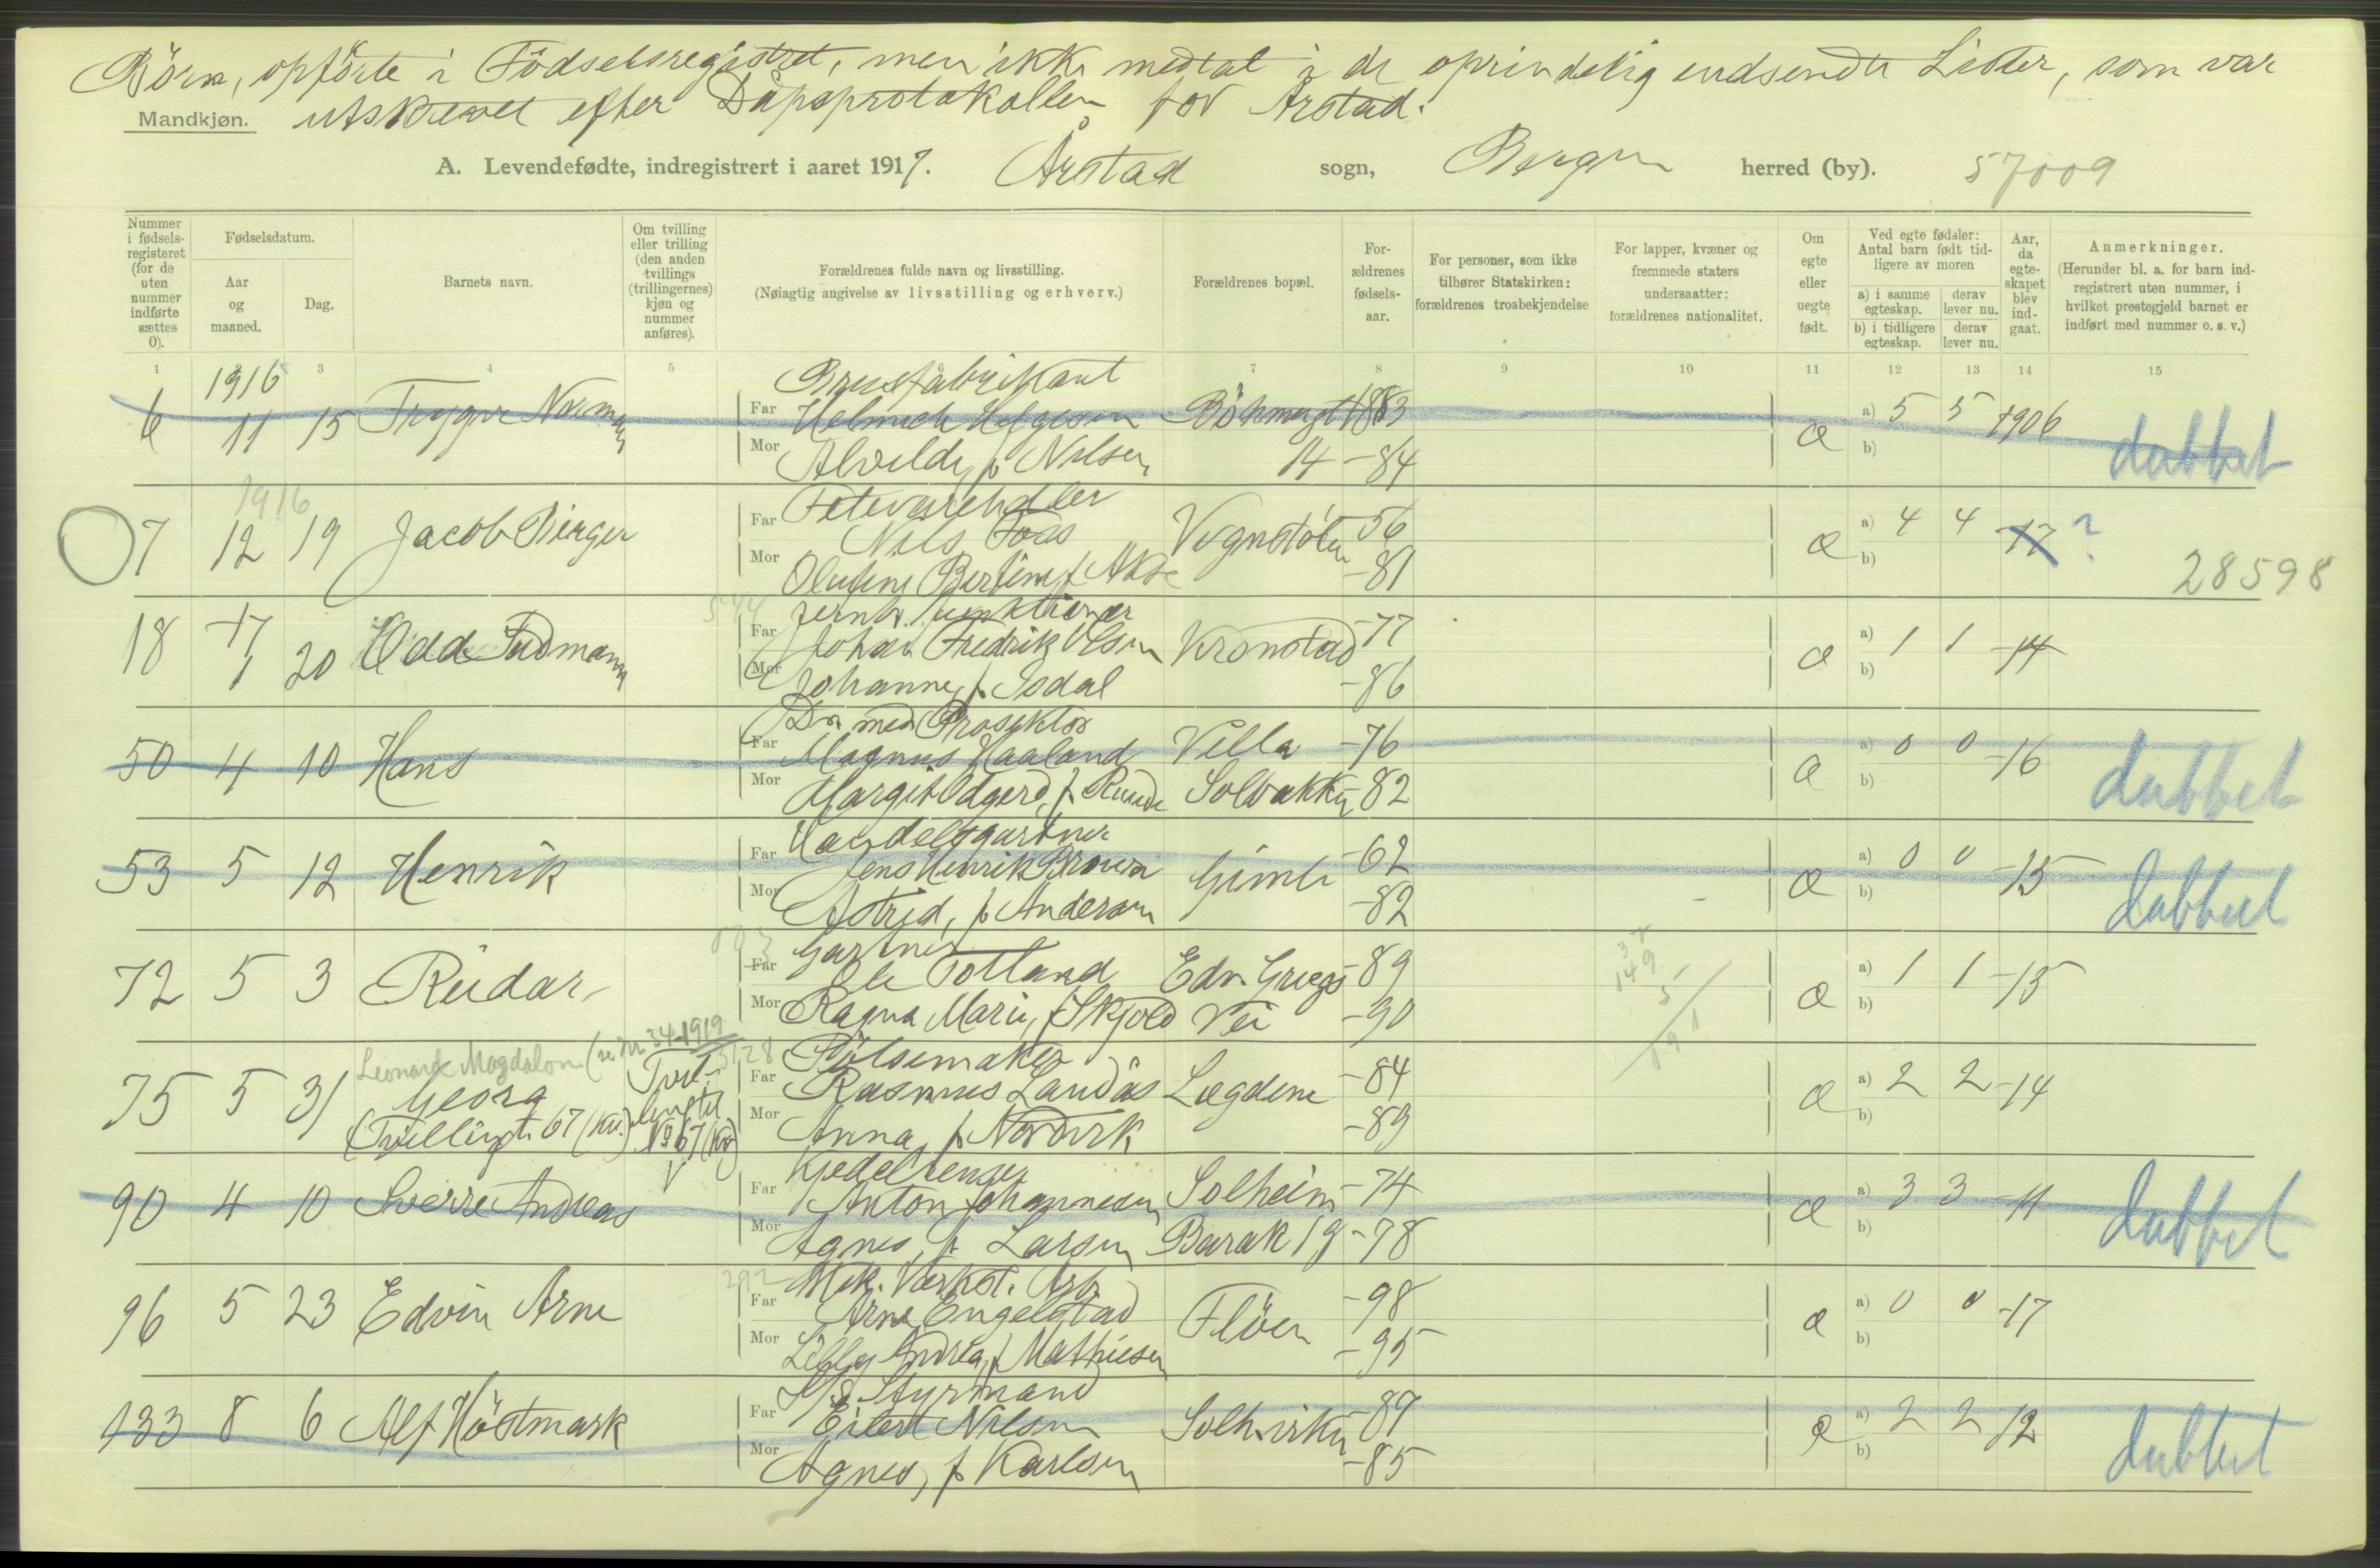 Börn, opförte i Födselsregistret, men ikke medtat i de oprindelig indsendte Lister, som var
Mandkjøn. utskrevet efter Dåpsprotokollen for Årstad.
A. Levendefødte, indregistrert i aaret 1917. Årstad sogn, Bergen herred (by). 57009
Nummer i fødsels-registeret (for de uten nummer indførte sættes 0).
Fødselsdatum.
Aar og maaned.
Dag.
Barnets navn.
Om tvilling eller trilling (den anden tvillings (trillingernes) kjøn og nummer anføres).
Forældrenes fulde navn og livsstilling.
(Nøiagtig angivelse av livsstilling og erhverv.)
Forældrenes bopæl.
For-ældrenes fødsels-aar.
For personer, som ikke tilhører Statskirken: forældrenes trosbekjendelse
For lapper, kvæner og fremmede staters undersaatter: forældrenes nationalitet.
Om egte eller uegte født.
Ved egte fødsler: Antal barn født tid-ligere av moren
a) i samme egteskap.
derav lever nu.
b) i tidligere egteskap.
derav lever nu.
Aar, da egte-skapet blev ind-gaat.
Anmerkninger.
(Herunder bl. a. for barn ind-registrert uten nummer, i hvilket prestegjeld barnet er indført med nummer o. s. v.)
1 3 4 5 7 8 9 10 11 12 13 14 15
1916 Brusfabrikant
6 11 15 Trygve Norman Far Helmich Helgesen Böhmergt 1883 æ a) 5 5 1906 dubbet
Mor Alvilde, f. Nilsen 14 -84 b)
1916 Fetevarehdler
7 12 19 Jacob Birger Far Nils Foss Vognstölen -56 æ a) 4 4 -17 ?
Mor Olufine Bertine, f. Akse -81 b) 28598
544 Jernb. funktionær
18 17 1 20 Odd Fudmann Far Johan Fredrik Olsen Kronstad -77 æ a) 1 1 -14
Mor Johanne, f. Isdal -86 b)
Dr. med. Prosektor
50 4 10 Hans Far Magnus Haaland Villa -76 æ a) 0 0 -16 dubbet
Mor Margit Odgerd, f. Runde Solbakken -82 b)
Handelsgartner
53 5 12 Henrik Far Jens Henrik Broun Gimle -62 æ a) 0 0 -15 dubbet
Mor Astrid, f. Andersen -82 b)
Gartner
72 5 3 Reidar Far Ole Totland Edv. Griegs -89 æ a) 1 1 -15
Mor Ragna Marie, f. Skjold Vei -90 b)
Leonard Magdalon (se nr. 34-1919 3128 Pölsemaker
75 5 31 Georg Tvil- Far Rasmus Landås Lægdene -84 æ a) 2 2 -14
(Tvilling t. 67 (Kv.) ling til No 67 (Kv) Mor Anna, f. Nordvik -89 b)
Kjedelrenser
90 4 10 Sverre Andreas Far Anton Johannesen Solheim -74 æ a) 3 3 -11 dubbet
Mor Agnes, f. Larsen Barak 19 -78 b)
292 Mek. Værkst. Arb.
96 5 23 Edvin Arne Far Arne Engelstad Flöen -98 æ a) 0 0 -17
Mor Lilly Andrea, f. Mathiesen -95 b)
Styrmand
133 8 6 Alf Höstmark Far Eilert Nilsen Solheimsvikn -87 æ a) 2 2 12 dubbet
Mor Agnes, f. Karlsen -85 b)